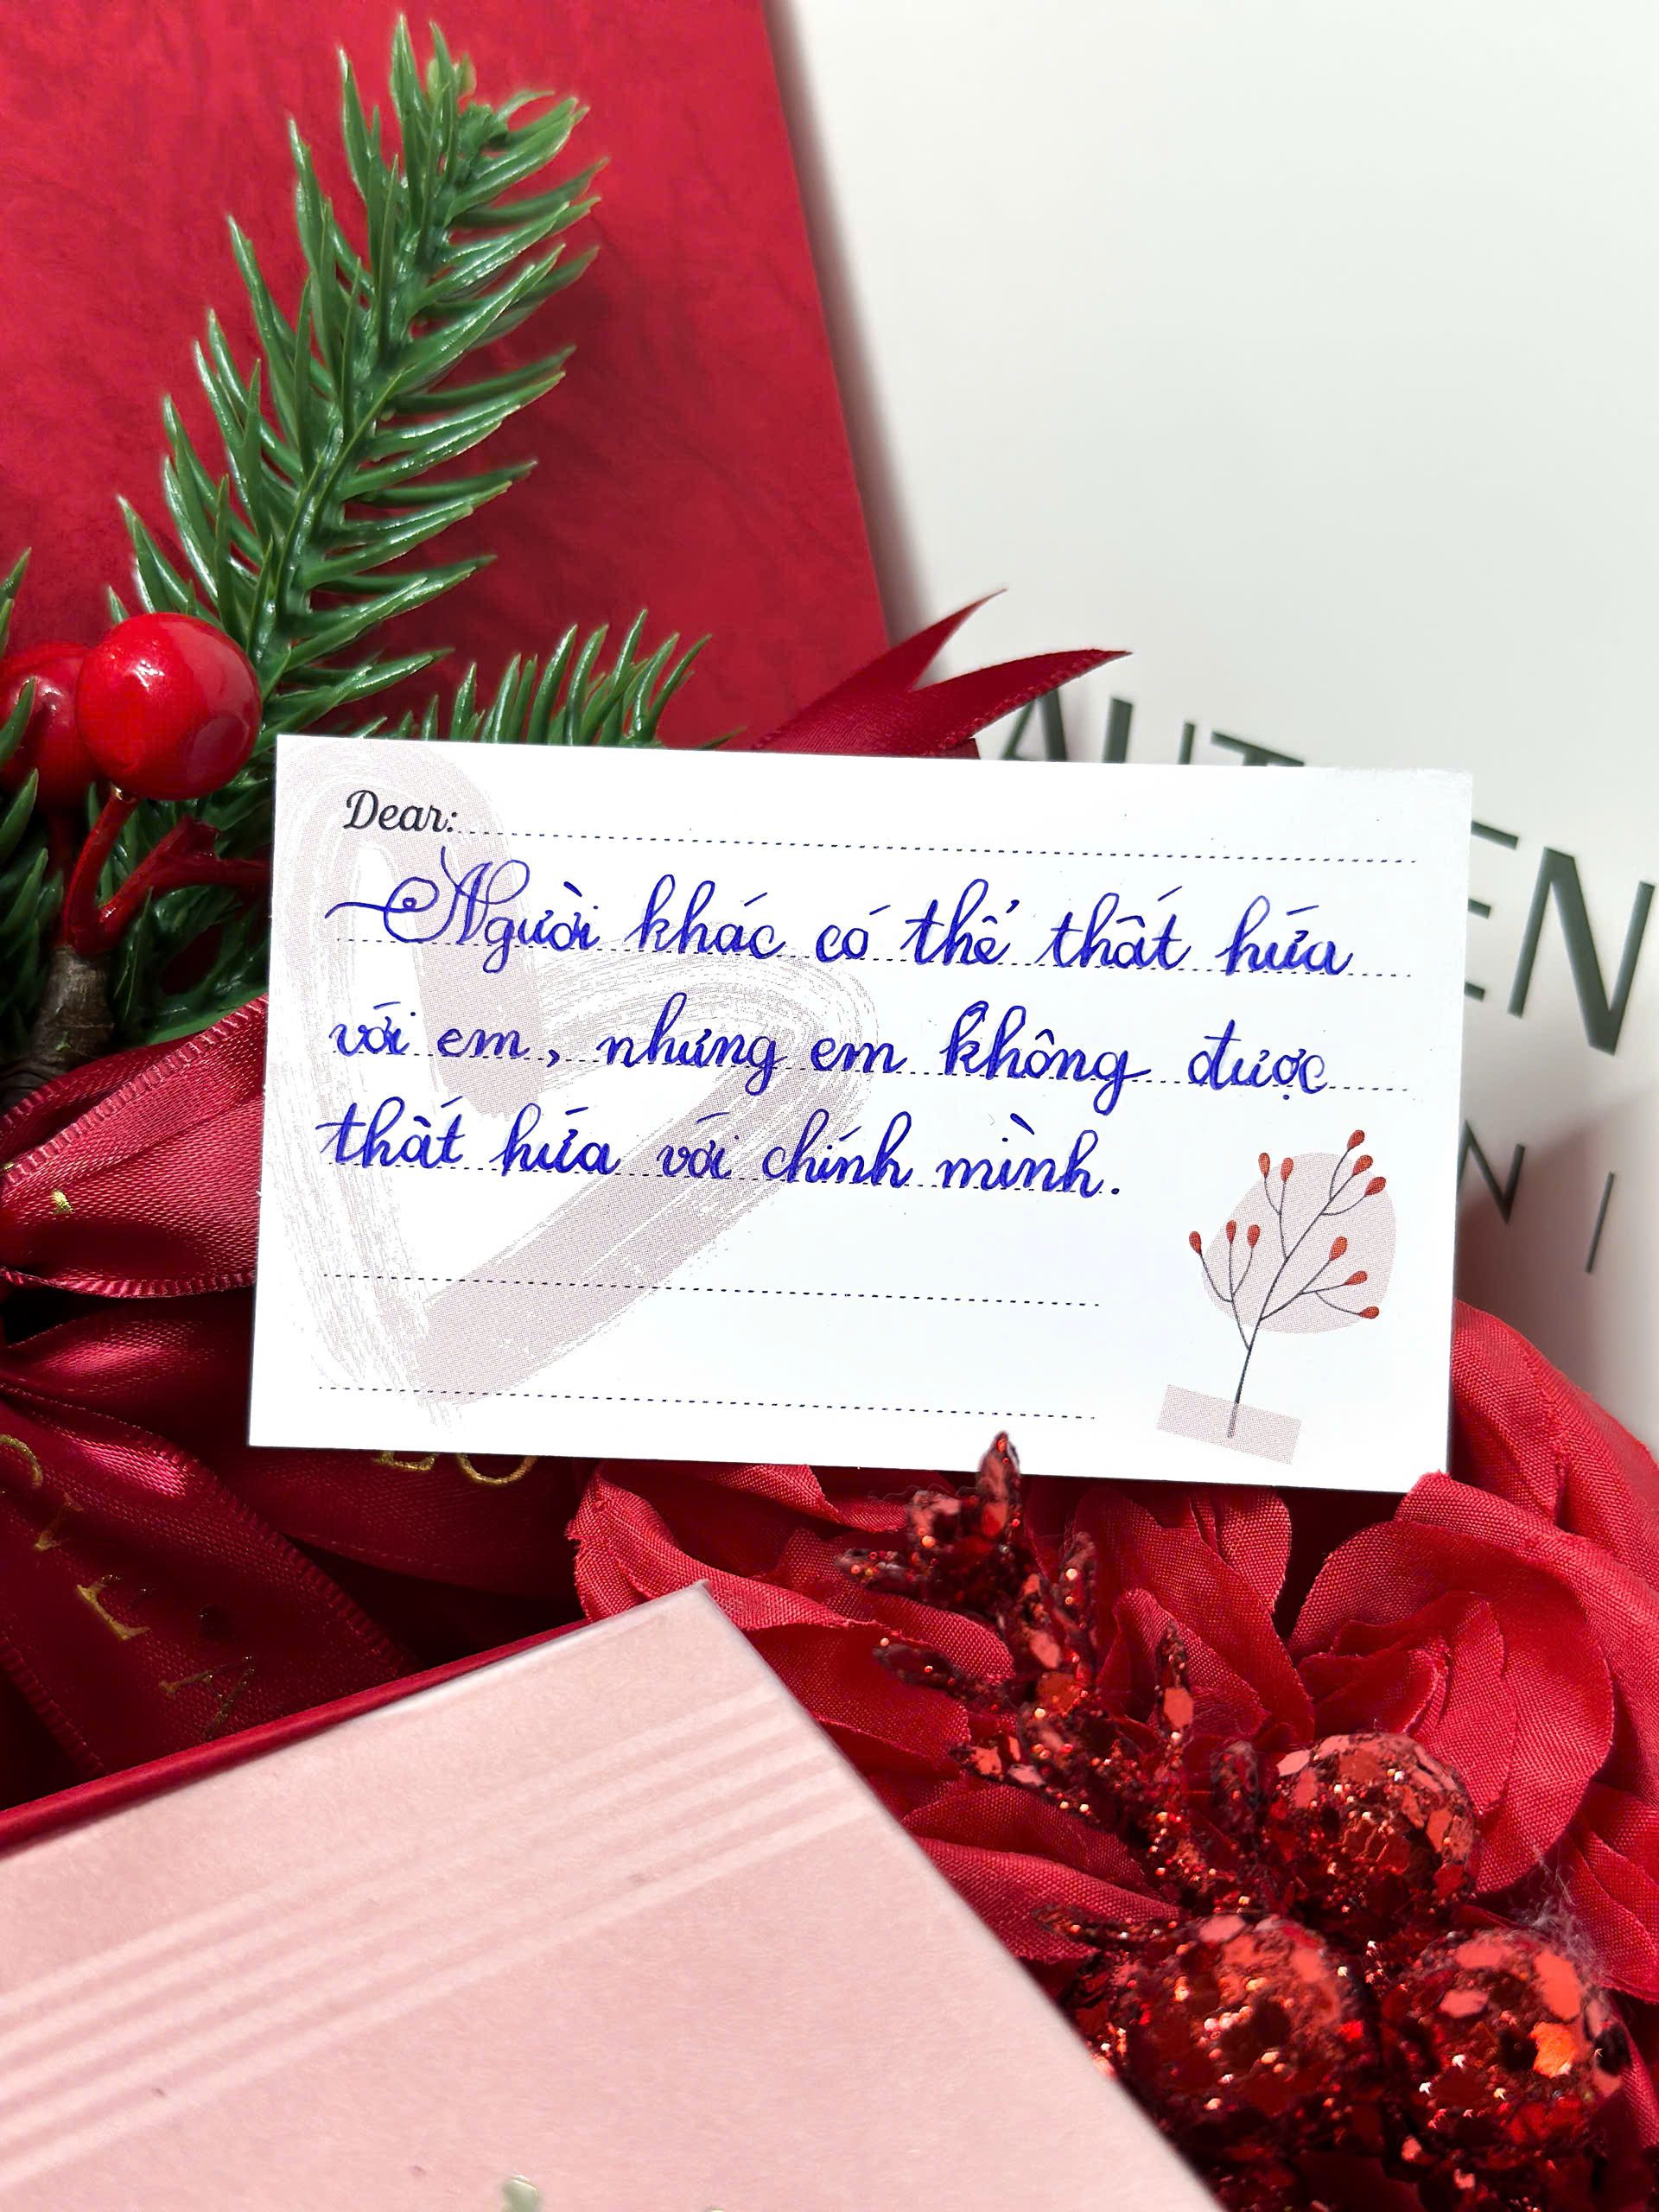 Dear:
Người khác có thể thất hứa
với em, nhưng em không được
thất hứa với chính mình.